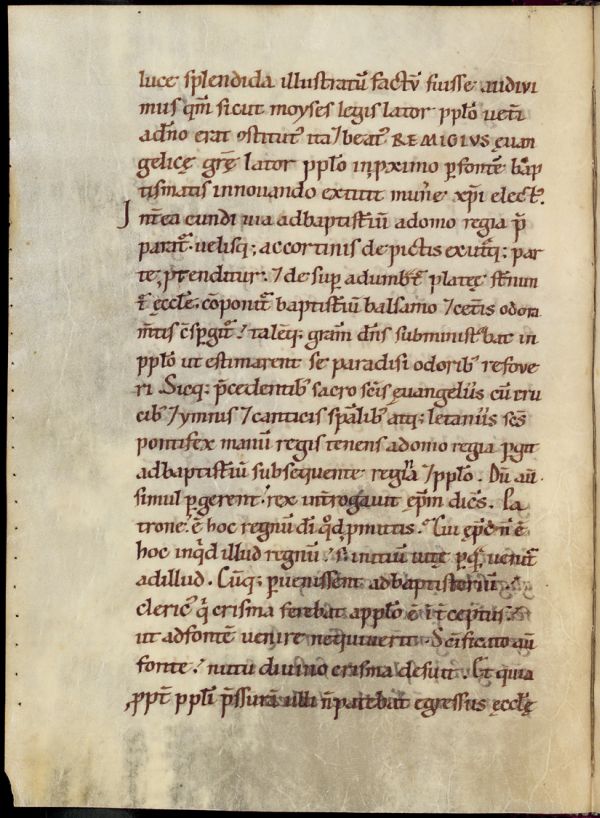 luce splendida illustratū factū fuisse audivi
mus qm̄ sicut moyses legis lator pp̄lo vet̄i
a dn̄o erat ꝯstitut᷒ ita ⁊ beat᷒ REMIGIVS ęuan
gelicę gr̄ę lator pp̄lo in ꝓximo ꝑ fontē bap
tismatis innouando extitit mun̄e xp̄i elect᷒.
Int̄ea eundi uia ad baptist̄iū a domo regia p̄
parat᷑. uelisq; ac cortinis depictis exutq; par
te, ꝓtenditur. ⁊ desup adumbrat᷑ platee st̄nun
t᷑ ęccłę. cōponit᷑ baptist̄iū balsamo ⁊ cet̄is odora
m̄tis ꝯspgit᷑. talēq; gram̄ dn̄s subministrabat in
pp̄lo ut estimarent se paradisi odorib᷒ refoue
ri. Sicq; p̄cedentib᷒ sacro sc̄is ęuangeliis cū cru
cib᷒ ⁊ ymnis ⁊ canticis spalib᷒ atq; letaniis sc̄s
pontifex manū regis tenens a domo regia ꝑgit
ad baptist̄iū subsequente regina ⁊ pp̄lo. Dū aū
simul ꝑgerent. rex int̄rogauit ep̄m dic̄s. Pa
trone. ē hoc regnū dī qd̄ ꝓmittis. Cui ep̄c n̄ ē
hoc inqd illud regnū. s; initiū uię ꝑ quā uenit᷑
ad illud. Cūq; ꝑuenissent ad baptisteriū.
cleric᷒ qi crisma ferebat a pp̄lo ē int̄ceptus.
ut ad fontē uenire nequiuerit. Sc̄ificato aū
fonte. nutu diuino crisma defuit. Et quia
ꝓpt̄ pp̄li p̄ssurā ulli n̄ patebat egressus ęccłę